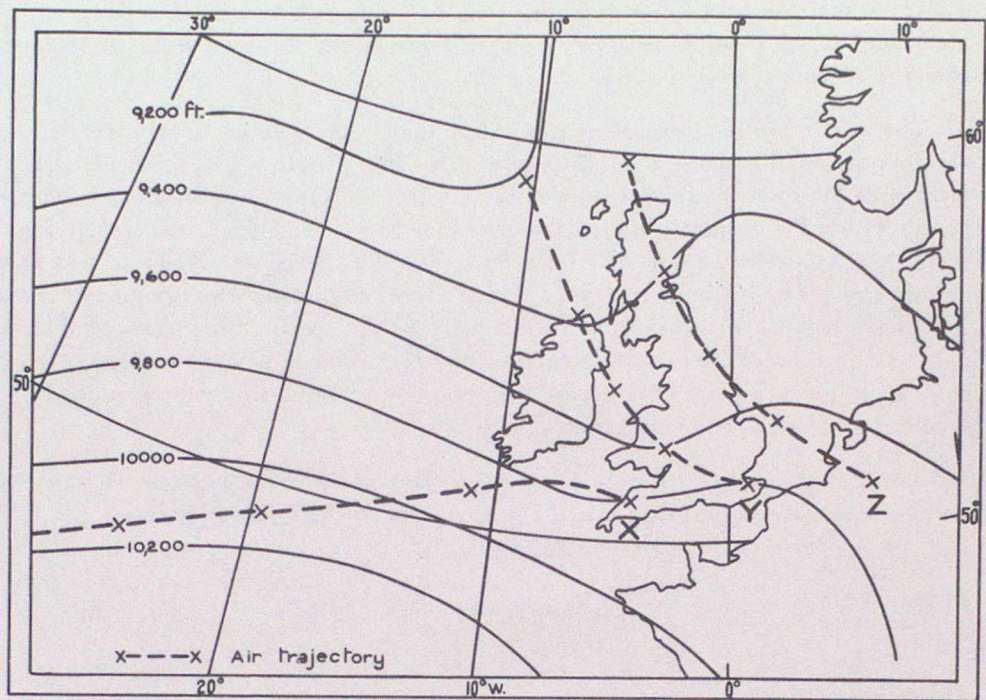 30° 20° 10° 0° 10°
9,200 ft.
60°
9,400
9,600
9,800
50°
10000
50°
X Y Z
10,200
x----x Air trajectory
20° 10°w. 0°